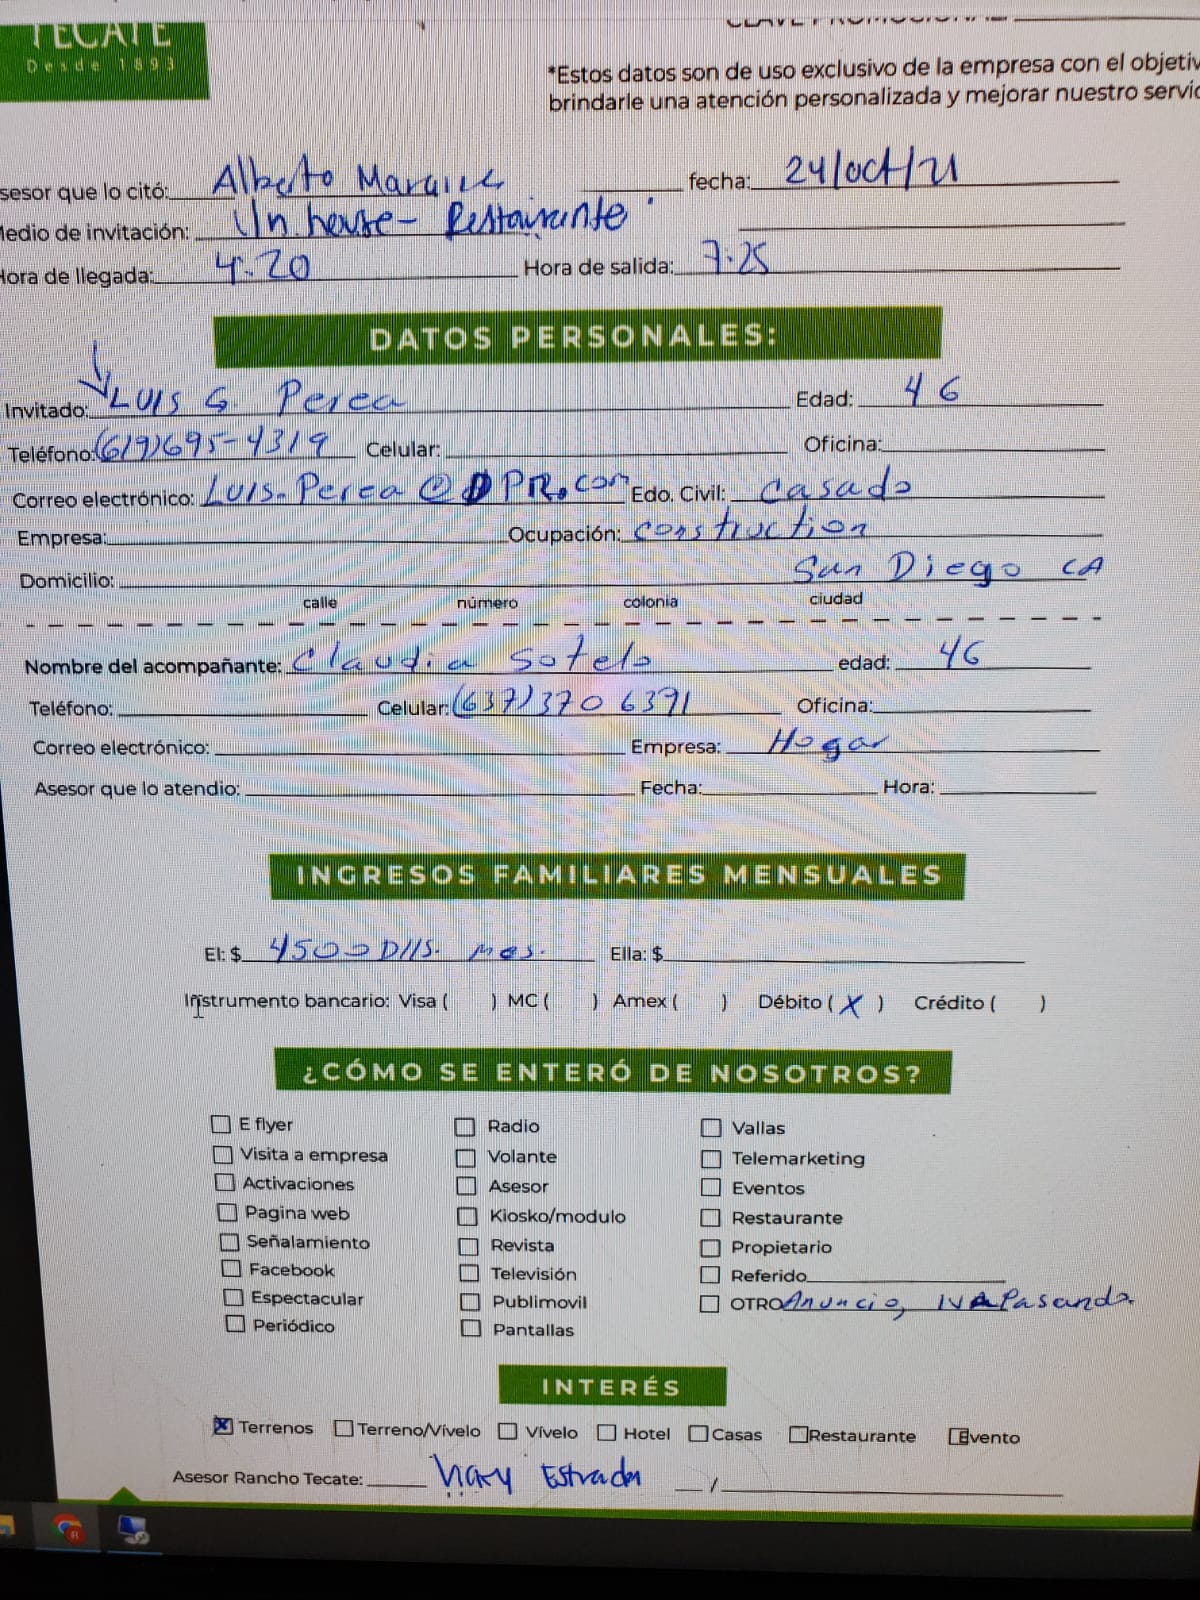 TECATE
Desde 1893
CLAVE PROMOCIONAL:
*Estos datos son de uso exclusivo de la empresa con el objetiv
brindarle una atención personalizada y mejorar nuestro servic
sesor que lo citó: Alberto fecha: 24/oct/21
Medio de invitación: In house - Restaurante
Hora de llegada: 4:20 Hora de salida: 7:25
DATOS PERSONALES:
Invitado: LUIS G. Perea Edad: 46
Teléfono: (619)695-4319 Celular: Oficina:
Correo electrónico: Luis.Perea@DPR.com Edo. Civil: casado
Empresa: Ocupación: construction
Domicilio: San Diego CA
calle número colonia ciudad
Nombre del acompañante: Claudia Sotelo edad: 46
Teléfono: Celular: (637)370 6391 Oficina:
Correo electrónico: Empresa: Hogar
Asesor que lo atendio: Fecha: Hora:
INGRESOS FAMILIARES MENSUALES
El: $ 4500 Dlls. mes. Ella: $
Instrumento bancario: Visa ( ) MC ( ) Amex ( ) Débito ( X ) Crédito ( )
¿CÓMO SE ENTERÓ DE NOSOTROS?
E flyer Radio Vallas
Visita a empresa Volante Telemarketing
Activaciones Asesor Eventos
Pagina web Kiosko/modulo Restaurante
Señalamiento Revista Propietario
Facebook Televisión Referido
Espectacular Publimovil OTRO Anuncio, IVA Pasando.
Periódico Pantallas
INTERÉS
Terrenos Terreno/Vívelo Vívelo Hotel Casas Restaurante Evento
Asesor Rancho Tecate: Estrada /